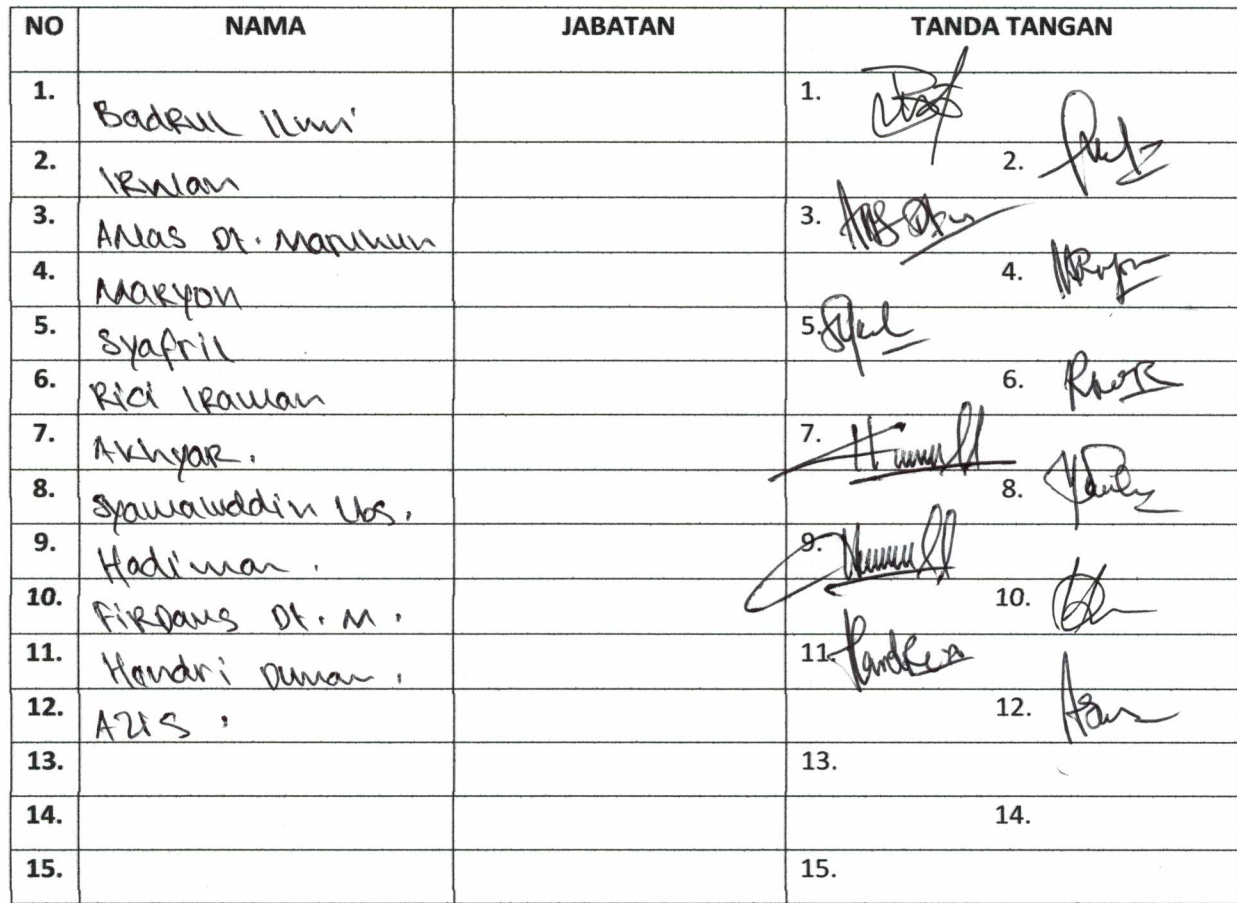 NO NAMA JABATAN TANDA TANGAN
1. Badrul Ilmi 1.
2. Irwan 2.
3. Anas Dt. Maruhun 3.
4. Maryon 4.
5. Syafril 5.
6. Rici Irawan 6.
7. Akhyar. 7.
8. Syamaluddin 8.
9. Hadiman. 9.
10. Firdaus Dt. M. 10.
11. Hendri 11.
12. Azis. 12.
13. 13.
14. 14.
15. 15.